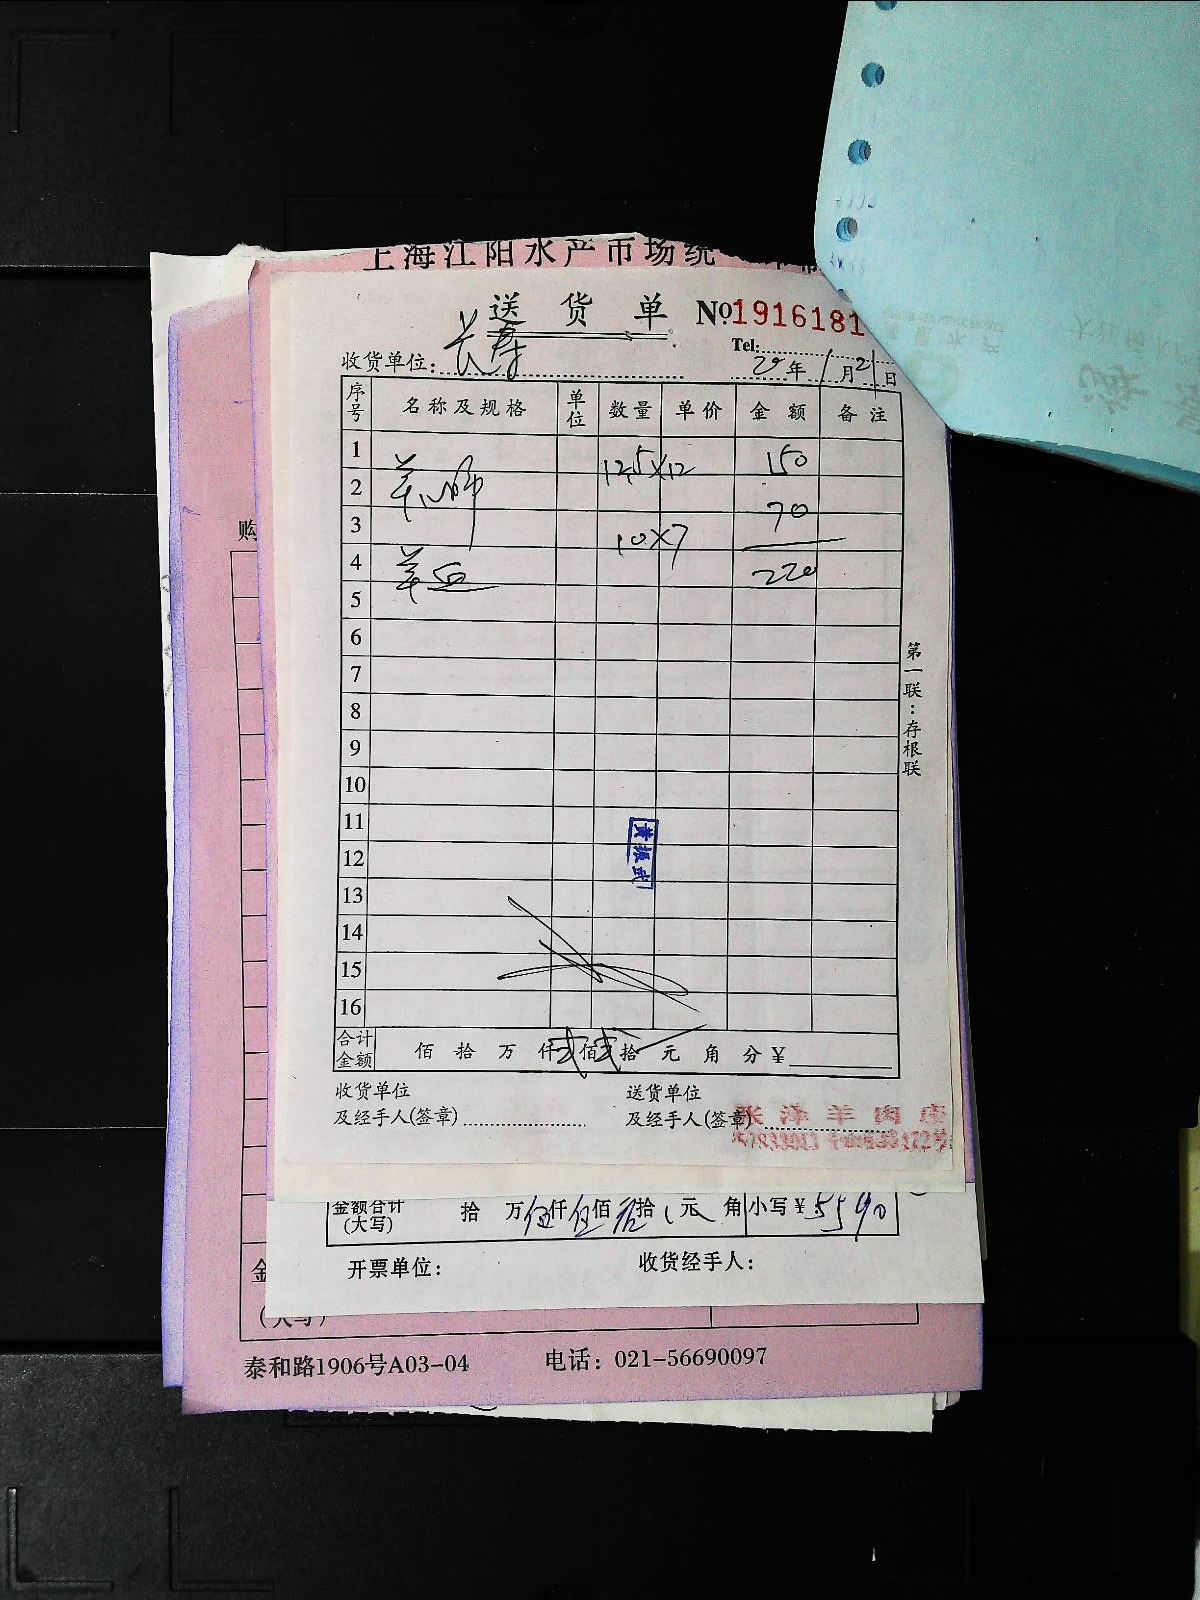 上海江阳水产市场统
送货单 №1916181
Tel:
收货单位: 长寿 20年1月21日
序号 名称及规格 单位 数量 单价 金额 备注
1 12.5×12 150
2 羊心肺 70
3 10×7
4 羊血 220
5
6
7
8
9
10
11
12
13
14
15
16
黄振武
合计金额 佰 拾 万 仟 弍佰 弍拾 元 角 分 ¥
收货单位 送货单位
及经手人(签章) 及经手人(签章)
张泽羊肉店
第一联：存根联
购
金额合计(大写) 拾 万 伍仟 伍佰 拾 元 角 小写¥ 5590
开票单位： 收货经手人：
金
(大写)
泰和路1906号A03-04 电话：021-56690097